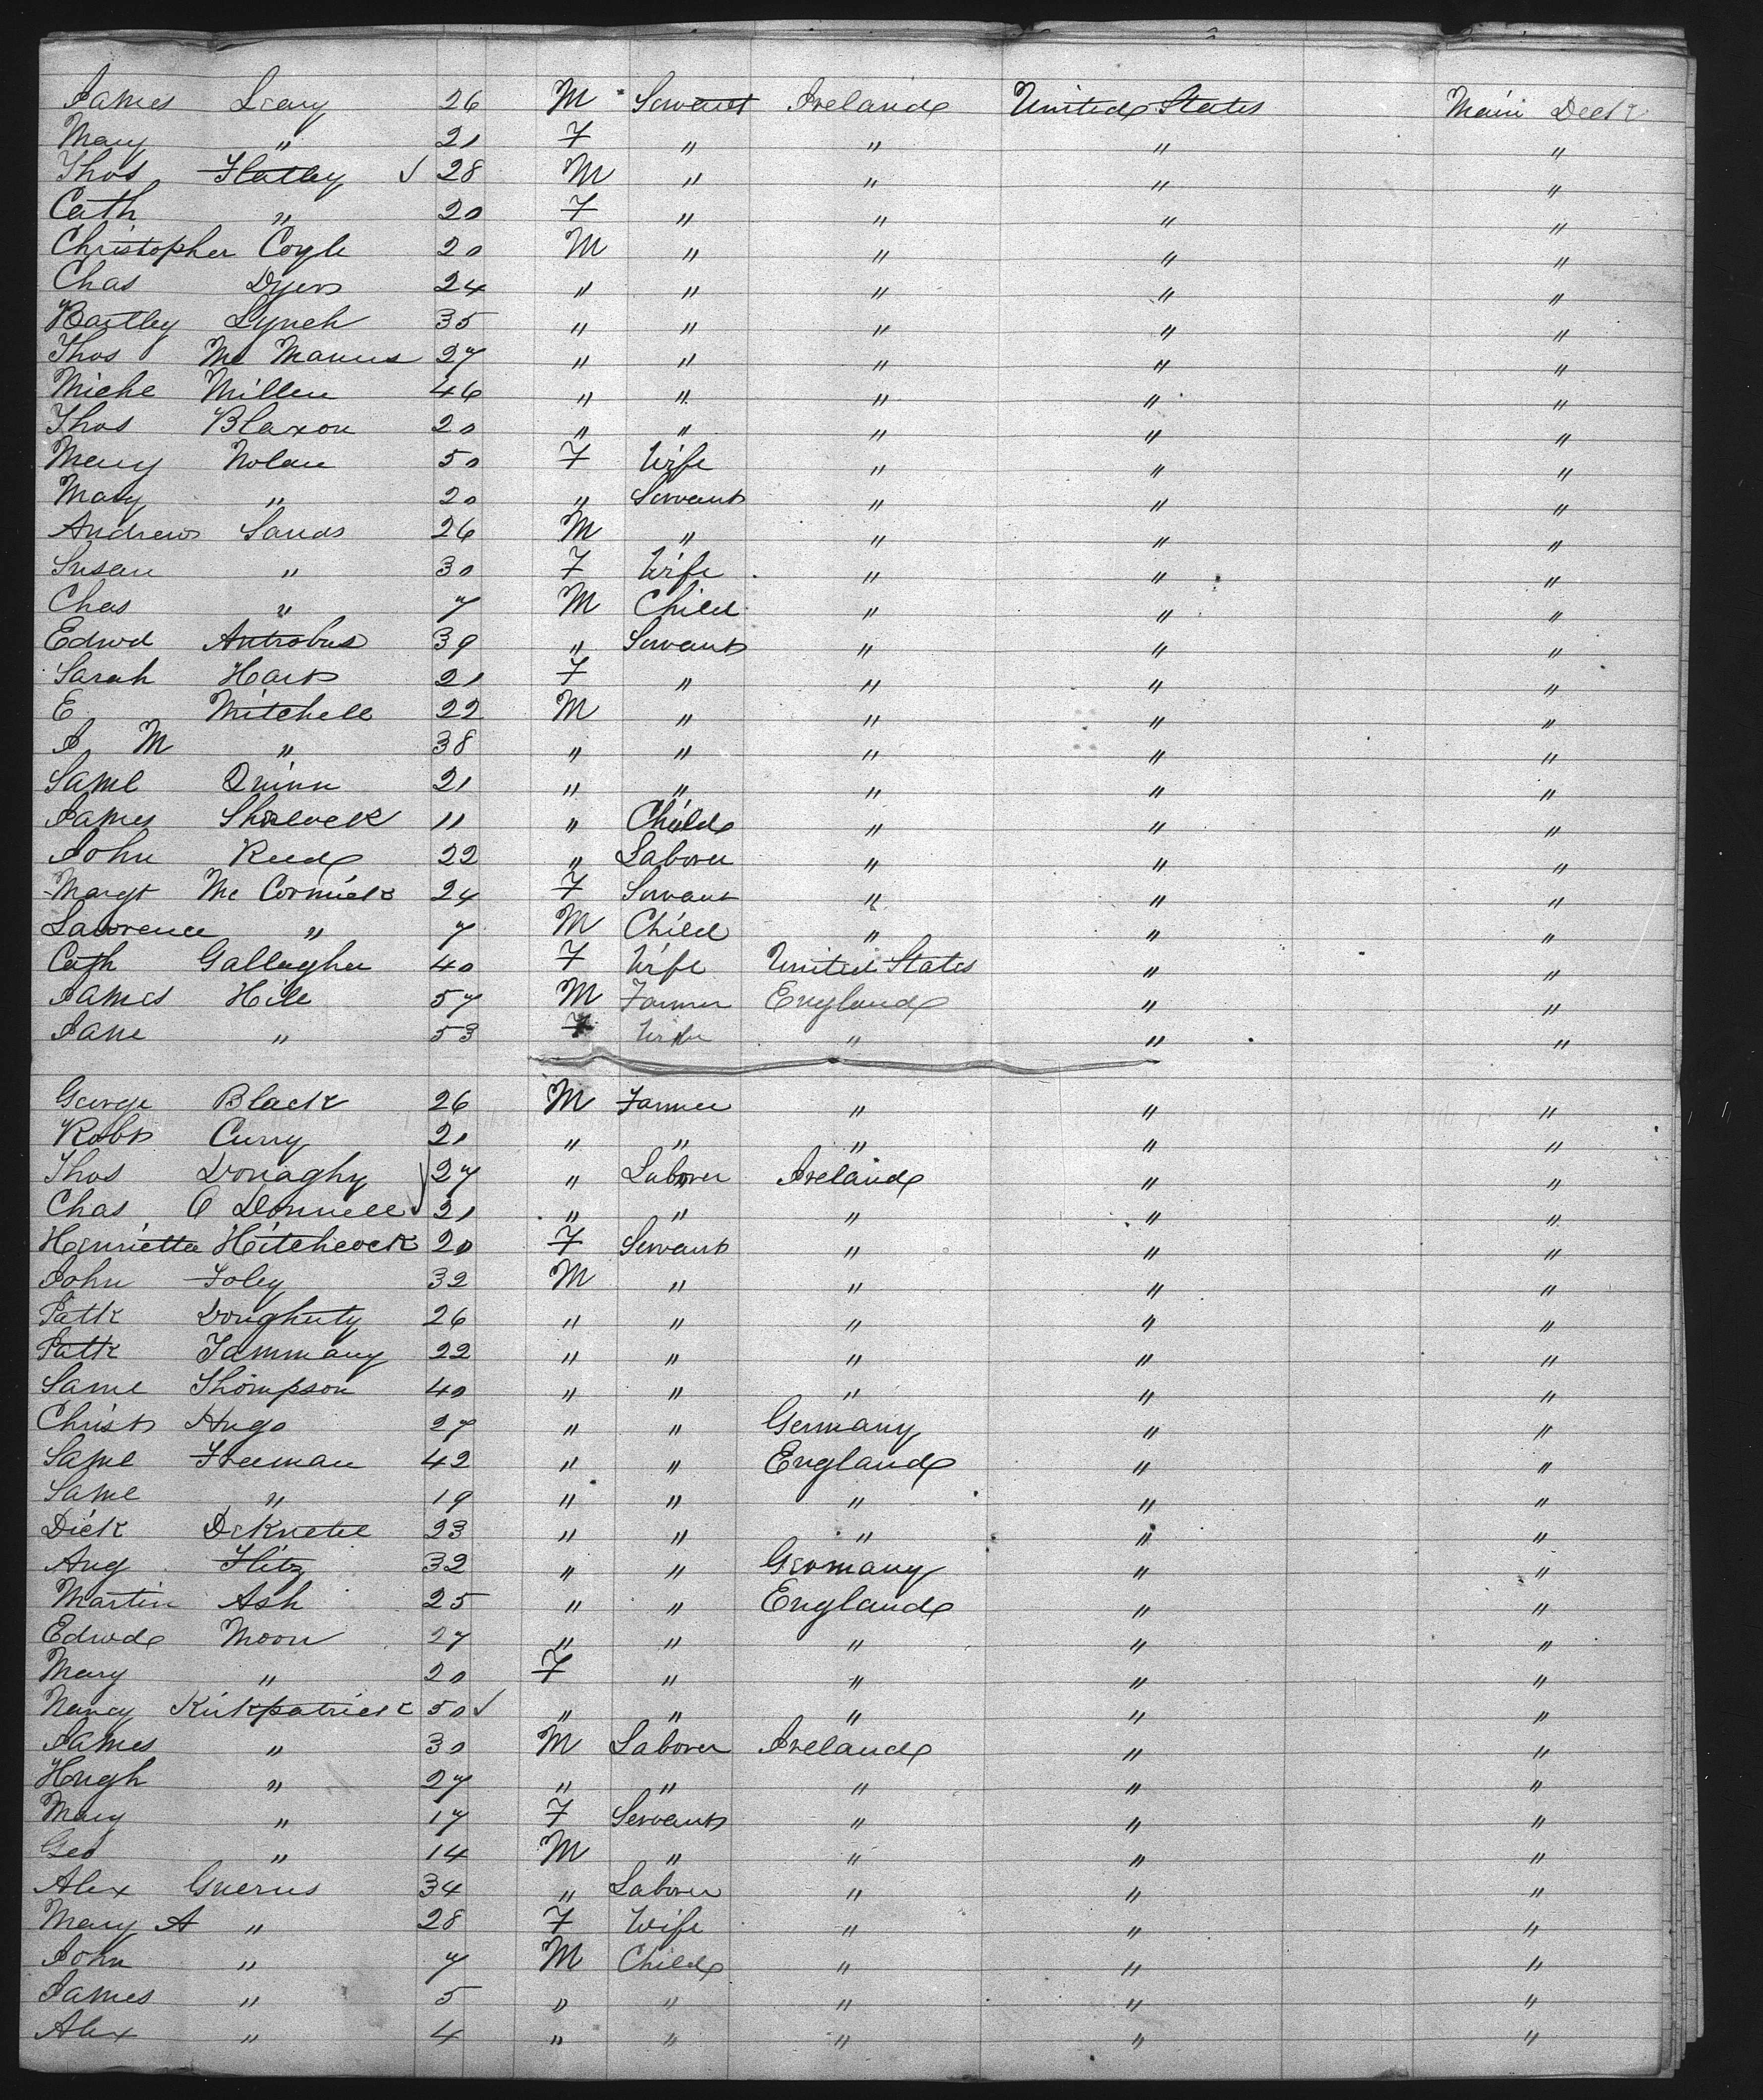 James Leary 26 M Servant Ireland United States Main Deck
Mary " 21 F " " " "
Thos Flatley √ 28 M " " " "
Cath " 20 F " " " "
Christopher Coyle 20 M " " " "
Chas Dyer 24 " " " " "
Bartley Lynch 35 " " " " "
Thos Mc Manus 27 " " " " "
Michl Millen 46 " " " " "
Thos Blaxon 20 " " " " "
Mary Nolan 50 F Wife " " "
Mary " 20 " Servant " " "
Andrew Sands 26 M " " " "
Susan " 30 F Wife " " "
Chas " 7 M Child " " "
Edwd Antrobus 39 " Servant " " "
Sarah Hart 21 F " " " "
E Mitchell 22 M " " " "
J M " 38 " " " " "
Saml Quinn 21 " " " " "
James Sherlock 11 " Child " " "
John Reed 22 " Laborer " " "
Margt Mc Cormick 24 F Servant " " "
Lawrence " 7 M Child " " "
Cath Gallagher 40 F Wife United States " "
James Hill 57 M Farmer England " "
Jane " 53 F Wife " " "
George Black 26 M Farmer " " "
Robt Curry 21 " " " " "
Thos Donaghy √ 27 " Laborer Ireland " "
Chas O Donnell √ 21 " " " " "
Henrietta Hitchcock 20 F Servant " " "
John Foley 32 M " " " "
Patk Dougherty 26 " " " " "
Patk Tammany 22 " " " " "
Saml Thompson 40 " " " " "
Christ Hugo 27 " " Germany " "
Saml Freeman 42 " " England " "
Saml " 19 " " " " "
Dick 23 " " " " "
Aug Flitz 32 " " Germany " "
Martin Ash 25 " " England " "
Edwd Moon 27 " " " " "
Mary " 20 F " " " "
Nancy Kirkpatrick 50 √ " " " " "
James " 30 M Laborer Ireland " "
Hugh " 27 " " " " "
Mary " 17 F Servant " " "
Geo " 14 M " " " "
Alex Guerus 34 " Laborer " " "
Mary A " 28 F Wife " " "
John " 7 M Child " " "
James " 5 " " " " "
Alex " 4 " " " " "